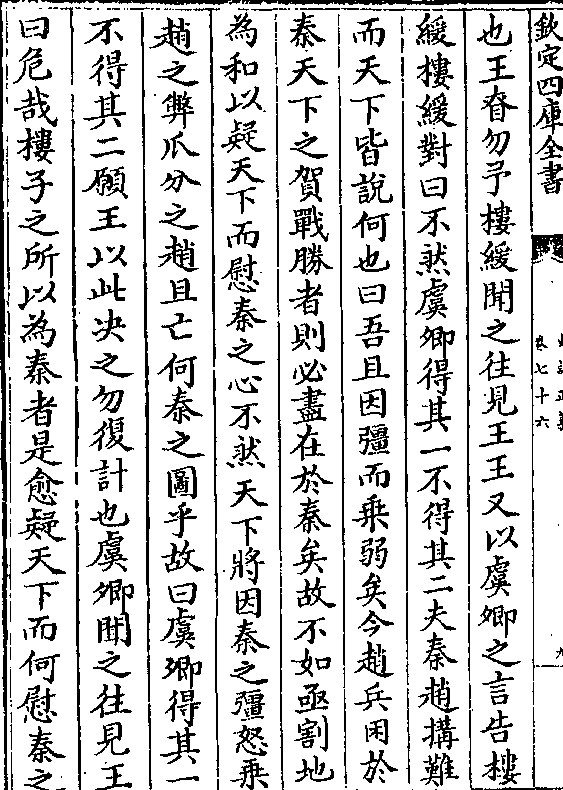 欽定四庫全書
卷七十六
也王眘勿予樓緩聞之往見王王又以虞卿之言告樓
緩樓緩對曰不然虞卿得其一不得其二夫秦趙搆難
而天下皆說何也曰吾且因彊而乗弱矣今趙兵困於
秦天下之賀戰勝者則必盡在於秦矣故不如亟割地
為和以疑天下而慰秦之心不然天下將因秦之彊怒乗
趙之弊瓜分之趙且亡何秦之圖乎故曰虞卿得其一
不得其二願王以此決之勿復計也虞卿聞之往見王
曰危哉樓子之所以為秦者是愈疑天下而何慰秦之